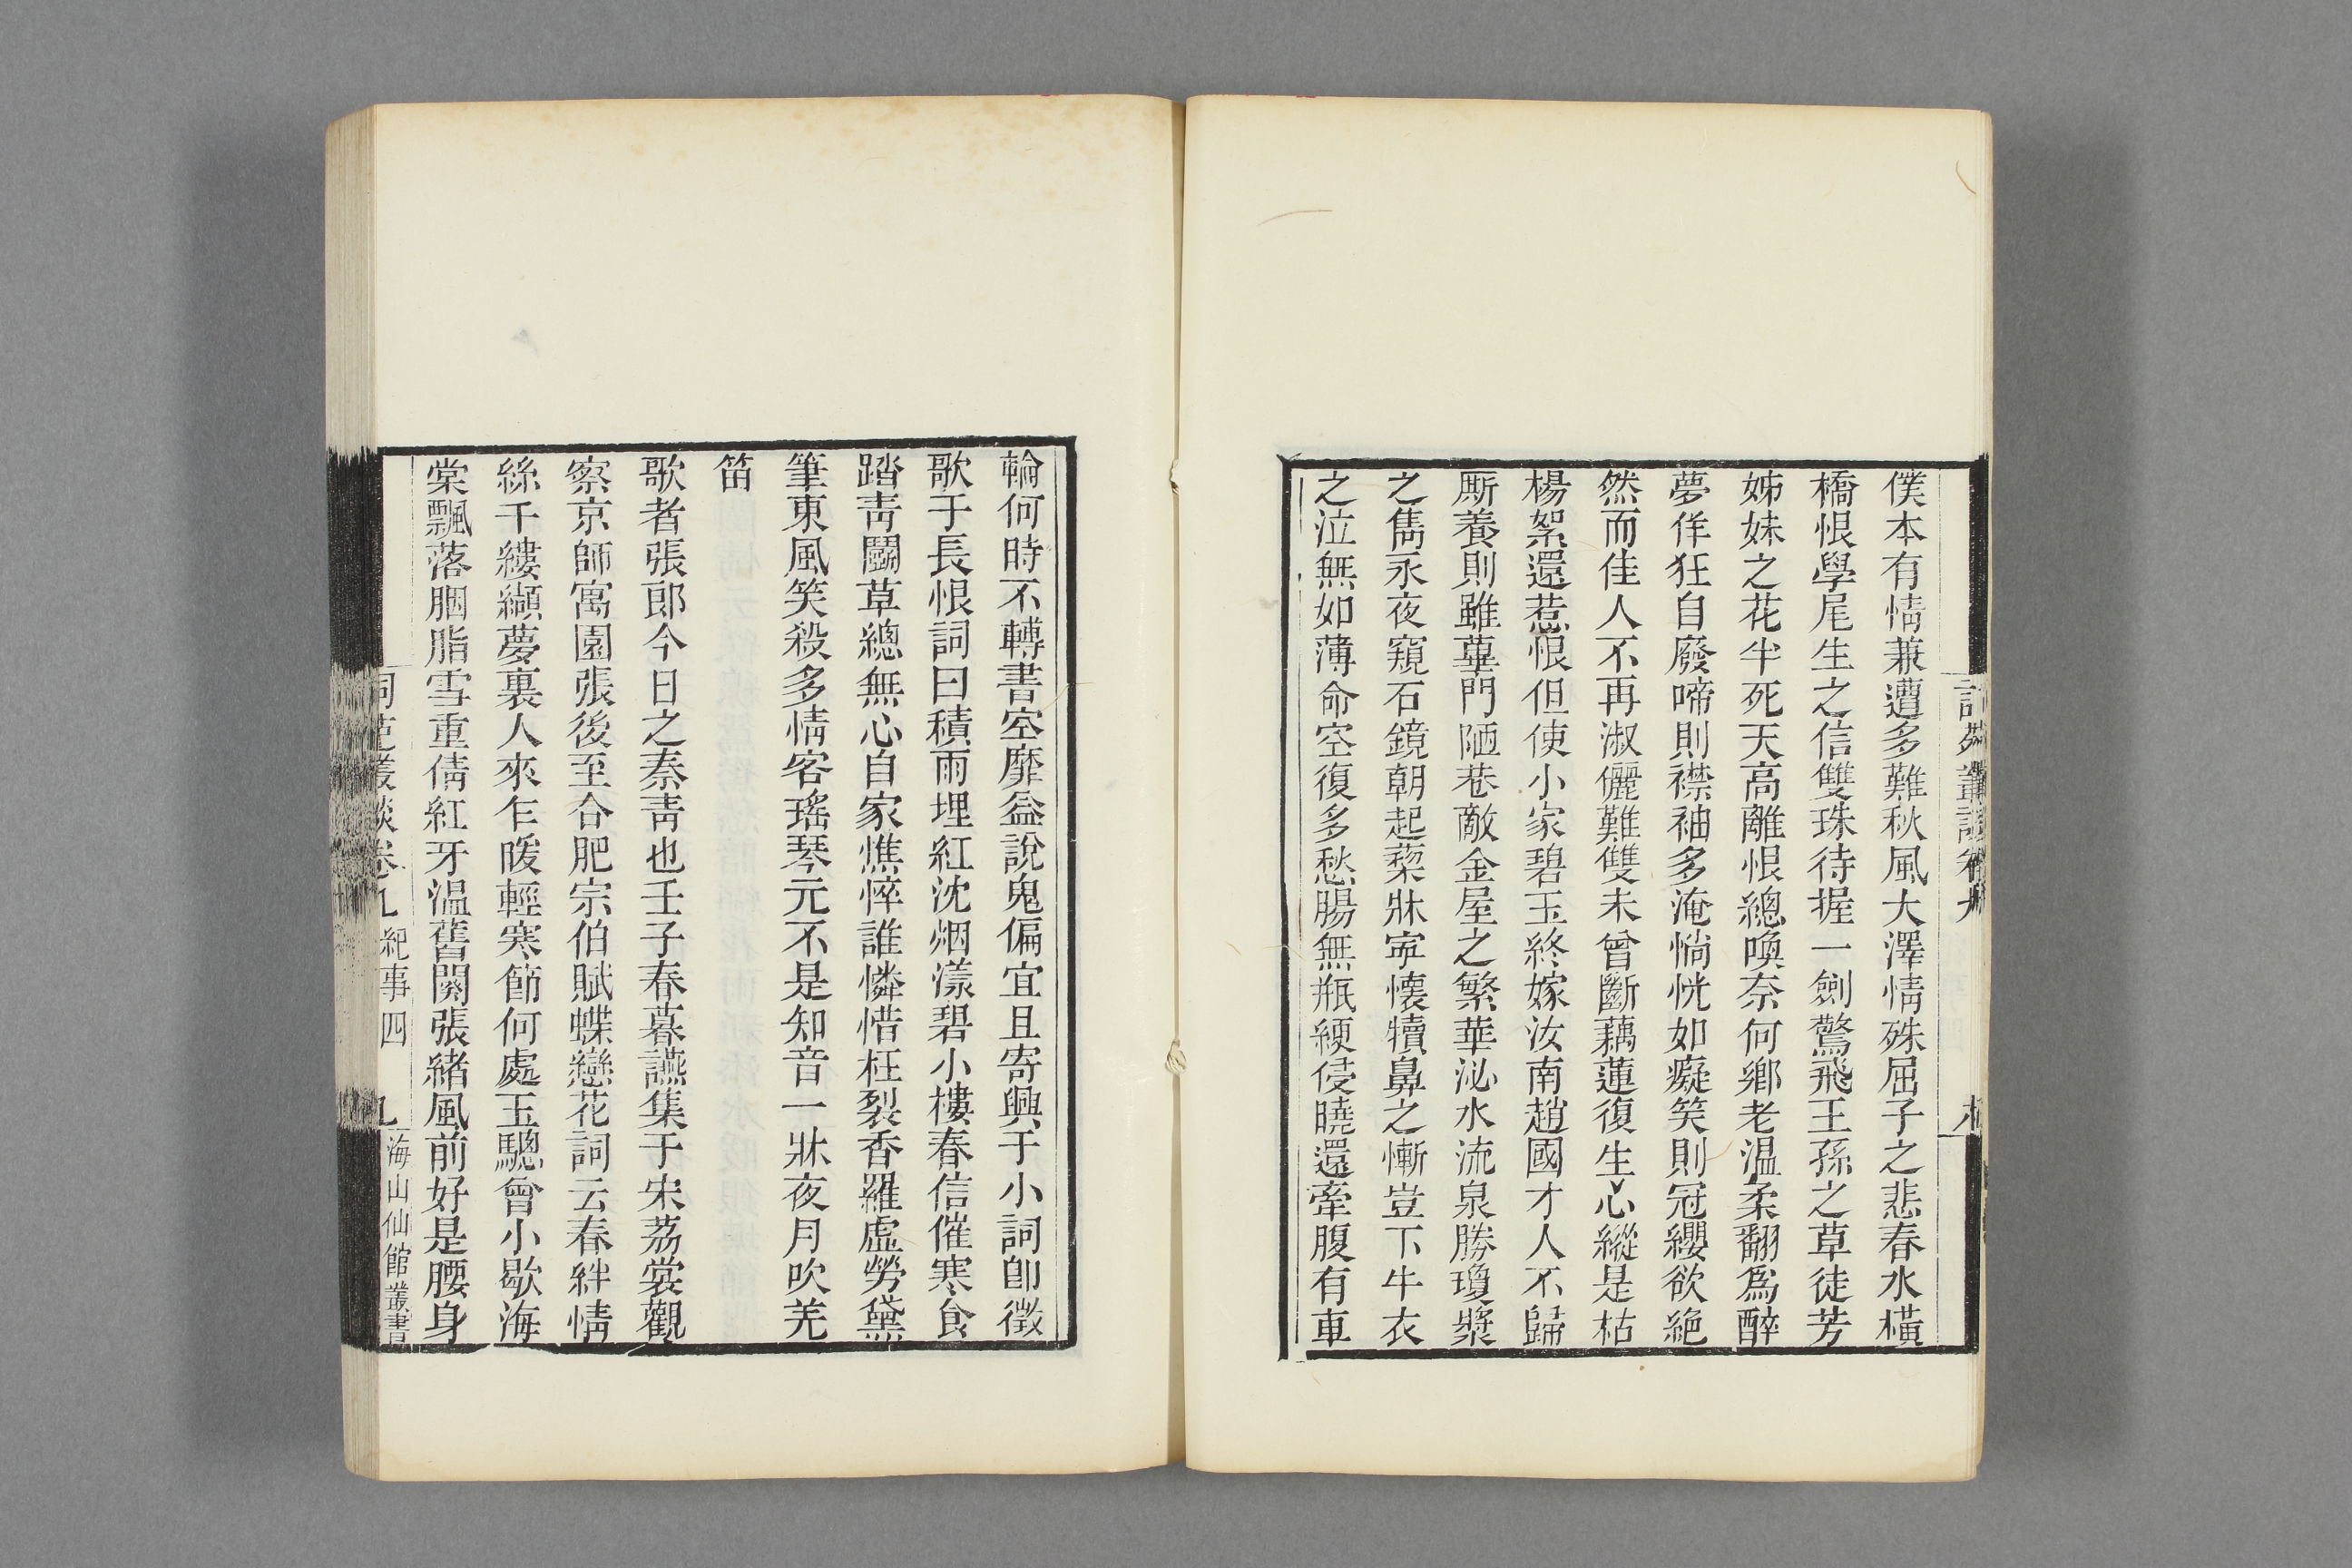 僕本有情兼遭多難秋風大澤情殊屈子之悲春水橫
橋恨學尾生之信雙珠待握一劍驚飛王孫之草徒芳
姊妹之花半死天高離恨總喚奈何鄉老溫柔翻爲醉
夢佯狂自廢啼則襟袖多淹惝恍如癡笑則冠纓欲絶
然而佳人不再淑儷難雙未曾斷藕蓮復生心縱是枯
楊絮還惹恨但使小家碧玉終嫁汝南趙國才人不歸
厮養則雖蓽門陋巷敵金屋之繁華泌水流泉勝瓊漿
之雋永夜窺石鏡朝起蔾牀寧懷犢鼻之慚豈下牛衣
之泣無如薄命空復多愁腸無瓶綆侵曉還牽腹有車
輪何時不轉書空靡益說鬼偏宜且寄興于小詞卽徵
歌于長恨詞曰積雨埋紅沈烟漾碧小樓春信催寒食
踏靑鬭草總無心自家憔悴誰憐惜枉裂香羅虛勞黛
筆東風笑殺多情客瑤琴元不是知音一牀夜月吹羌
笛
歌者張郞今日之秦靑也壬子春暮讌集于宋荔裳觀
察京師寓園張後至合肥宗伯賦蝶戀花詞云春絆情
絲千縷纈夢裏人來乍暖輕寒節何處玉驄曾小歇海
棠飄落胭脂雪重倩紅牙溫舊闋張緒風前好是腰身
詞苑叢談卷九 紀事四 九 海山仙館叢書